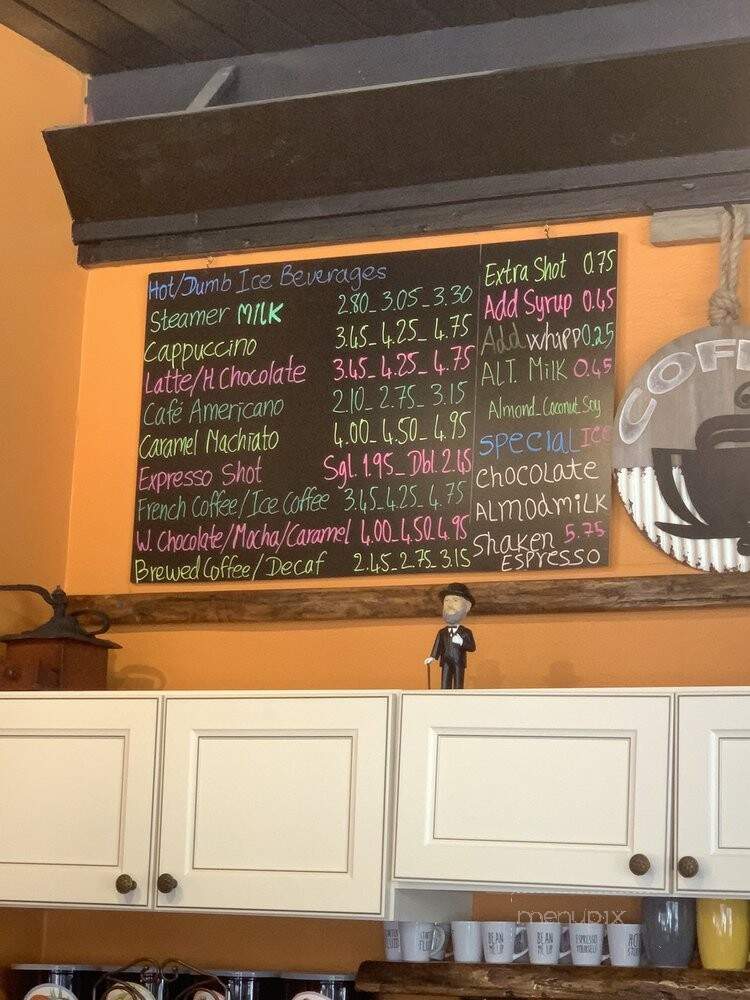 Hot/Dumb Ice Beverages
Steamer MILK 2.80_3.05_3.30
Cappuccino 3.45_4.25_4.75
Latte/H Chocolate 3.45_4.25_4.75
Café Americano 2.10_2.75_3.15
Caramel Machiato 4.00_4.50_4.95
Expresso Shot Sgl 1.95_Dbl 2.45
French Coffee/Ice Coffee 3.45_4.25_4.75
W. Chocolate/Mocha/Caramel 4.00_4.50_4.95
Brewed Coffee/Decaf 2.45_2.75_3.15
Extra Shot 0.75
Add Syrup 0.45
Add whipp 0.25
ALT. Milk 0.45
Almond_Coconut_Soy
special Ice
chocolate
ALMOdMILK
Shaken 5.75
ESPRESSO
BEAN ME UP
BEAN ME UP
ESPRESSO YOURSELF
menupix